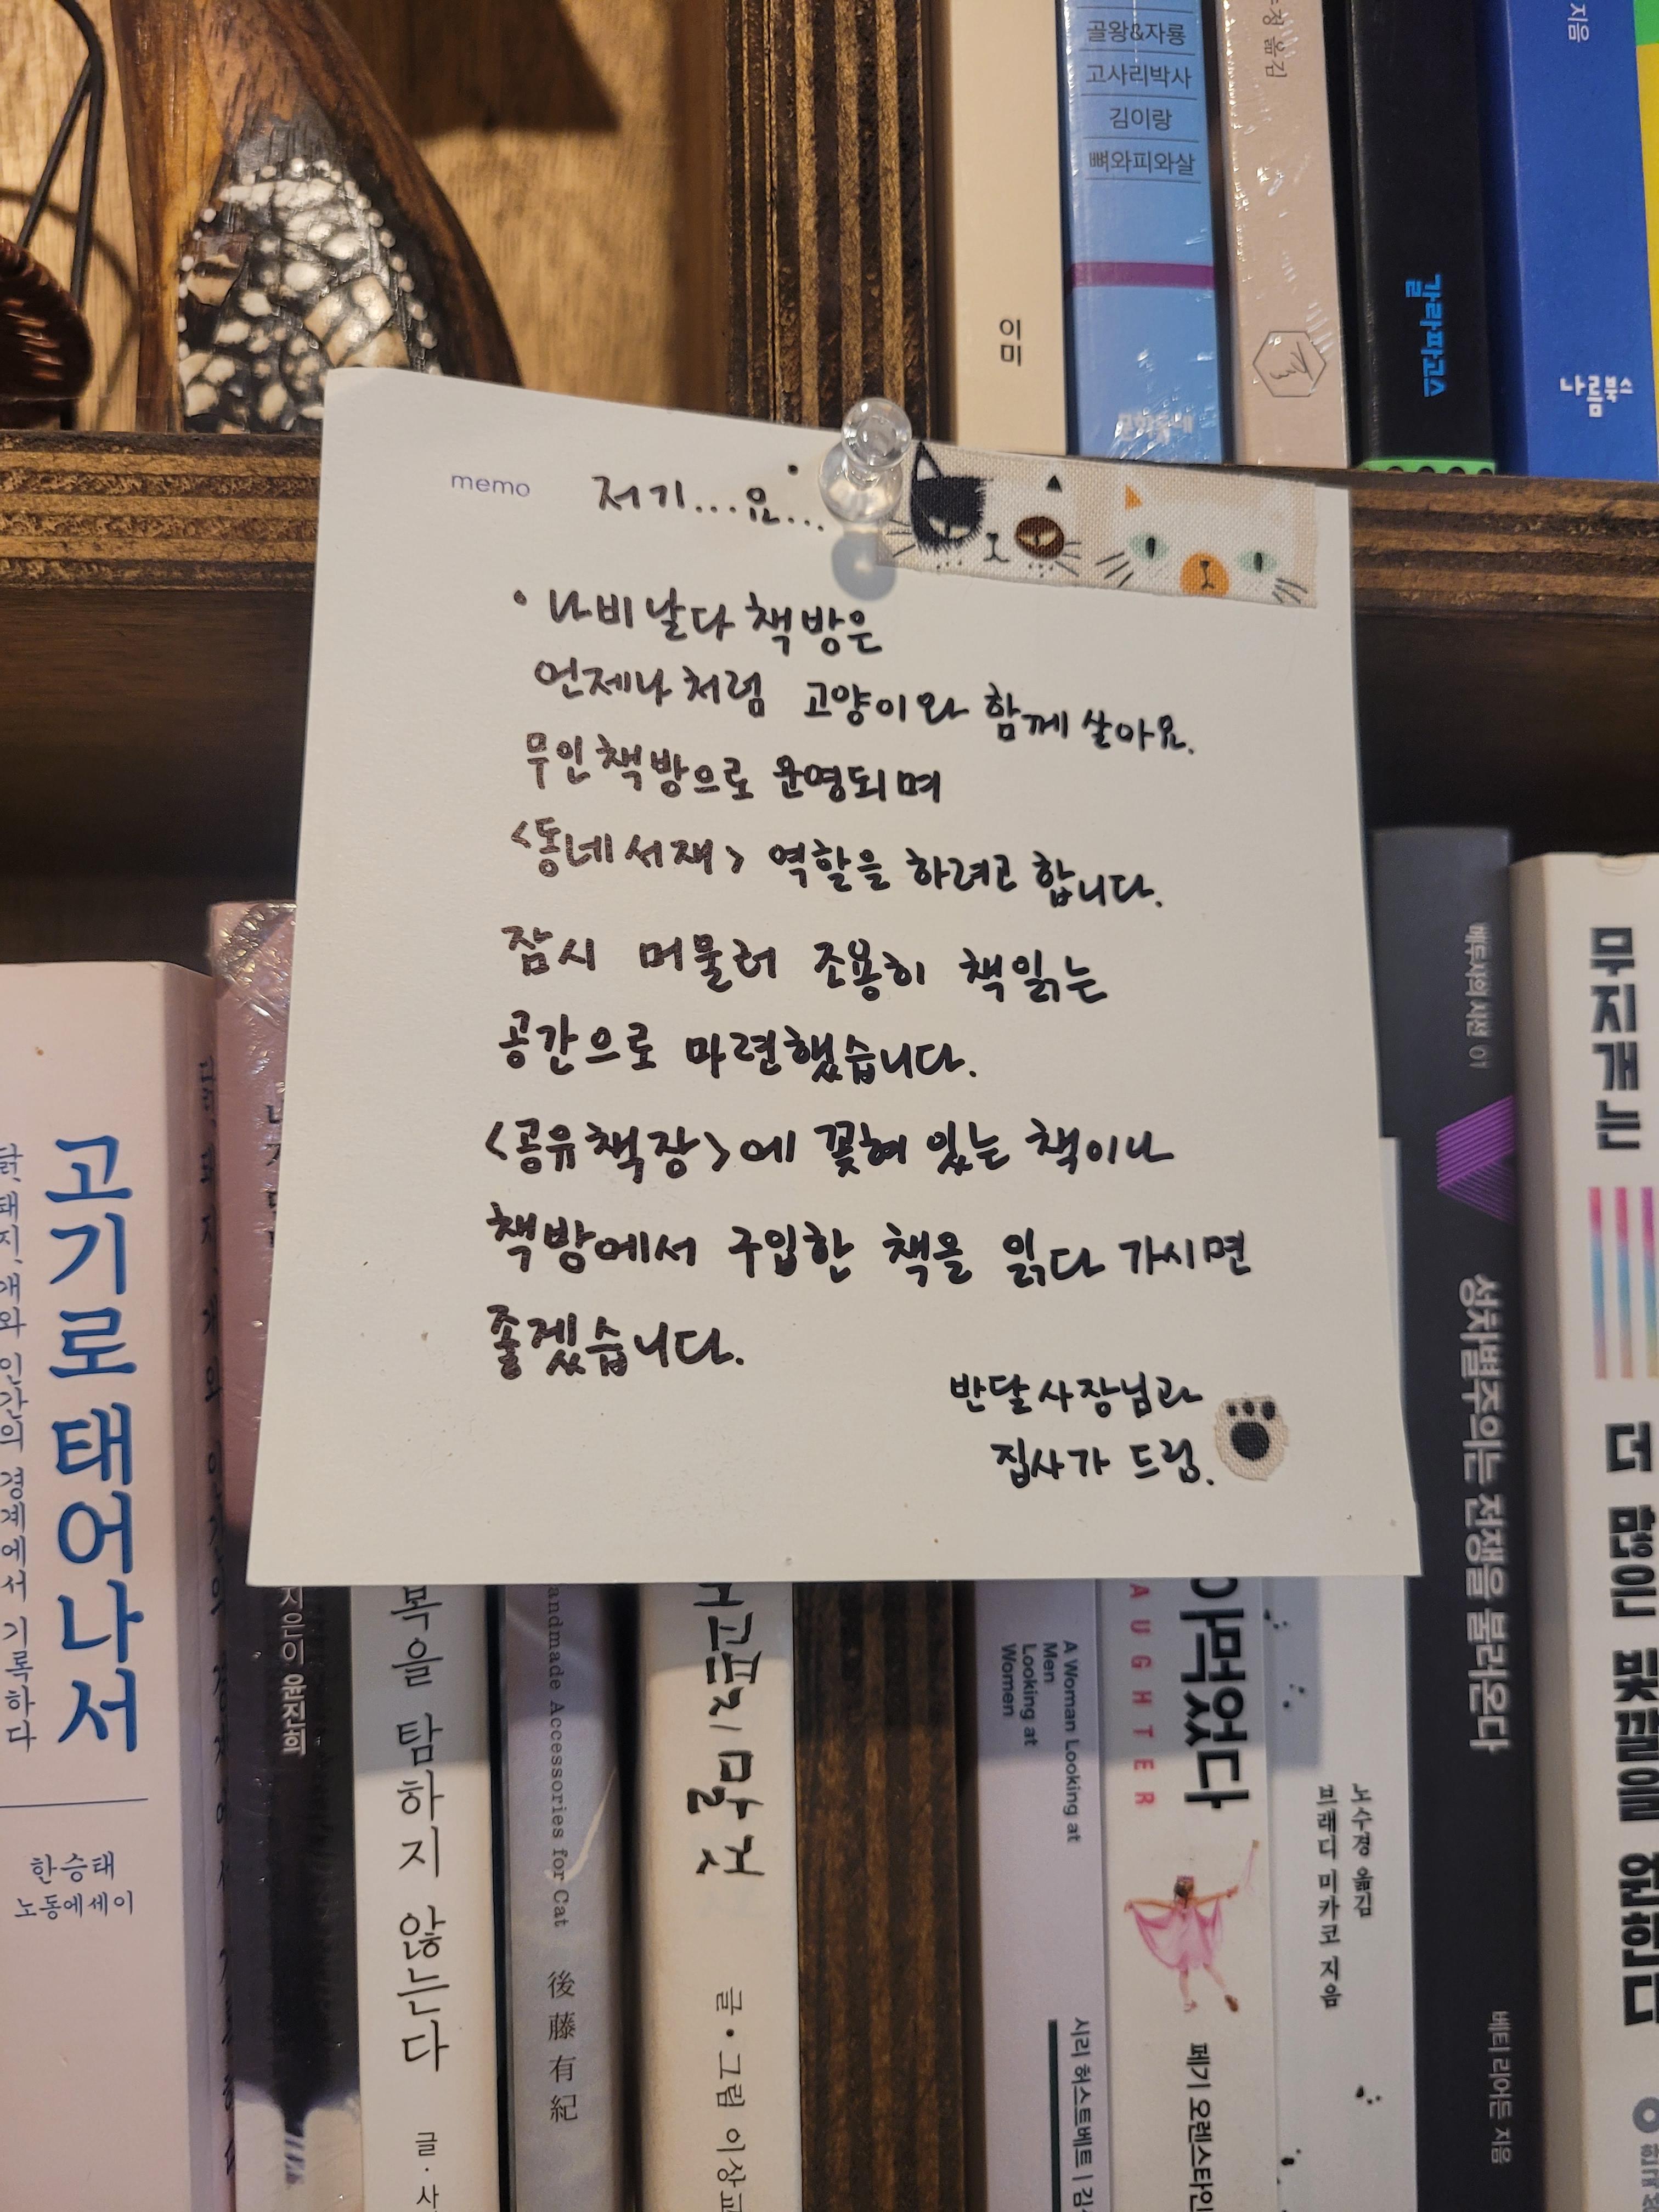 골왕&자룡
고사리박사
김이랑
뼈와피와살
문학동네
이미
옮김
갈라파고스
지음
나름북스
memo 저기...요...
• 나비날다 책방은
언제나처럼 고양이와 함께 살아요.
무인책방으로 운영되며
<동네서재> 역할을 하려고 합니다.
잠시 머물러 조용히 책읽는
공간으로 마련했습니다.
<공유책장>에 꽂혀 있는 책이나
책방에서 구입한 책을 읽다 가시면
좋겠습니다.
반달사장님과
집사가 드림.
고기로 태어나서
닭, 돼지, 개와 인간의 경계에서 기록하다
한승태
노동에세이
지은이 윤진희
목을 탐하지 않는다
글·사
andmade Accessories for Cat
後藤有紀
글·그림 이상교
A Woman Looking at
Men
Looking at
Women
시리 허스트베트 | 김
아먹었다
AUGHTER
페기 오렌스타인
노수경 옮김
브래디 미카코 지음
메두사의 시선 01
성차별주의는 전쟁을 불러온다
베티 리어든 지음
무지개는
더 많은 빛깔을 원한다